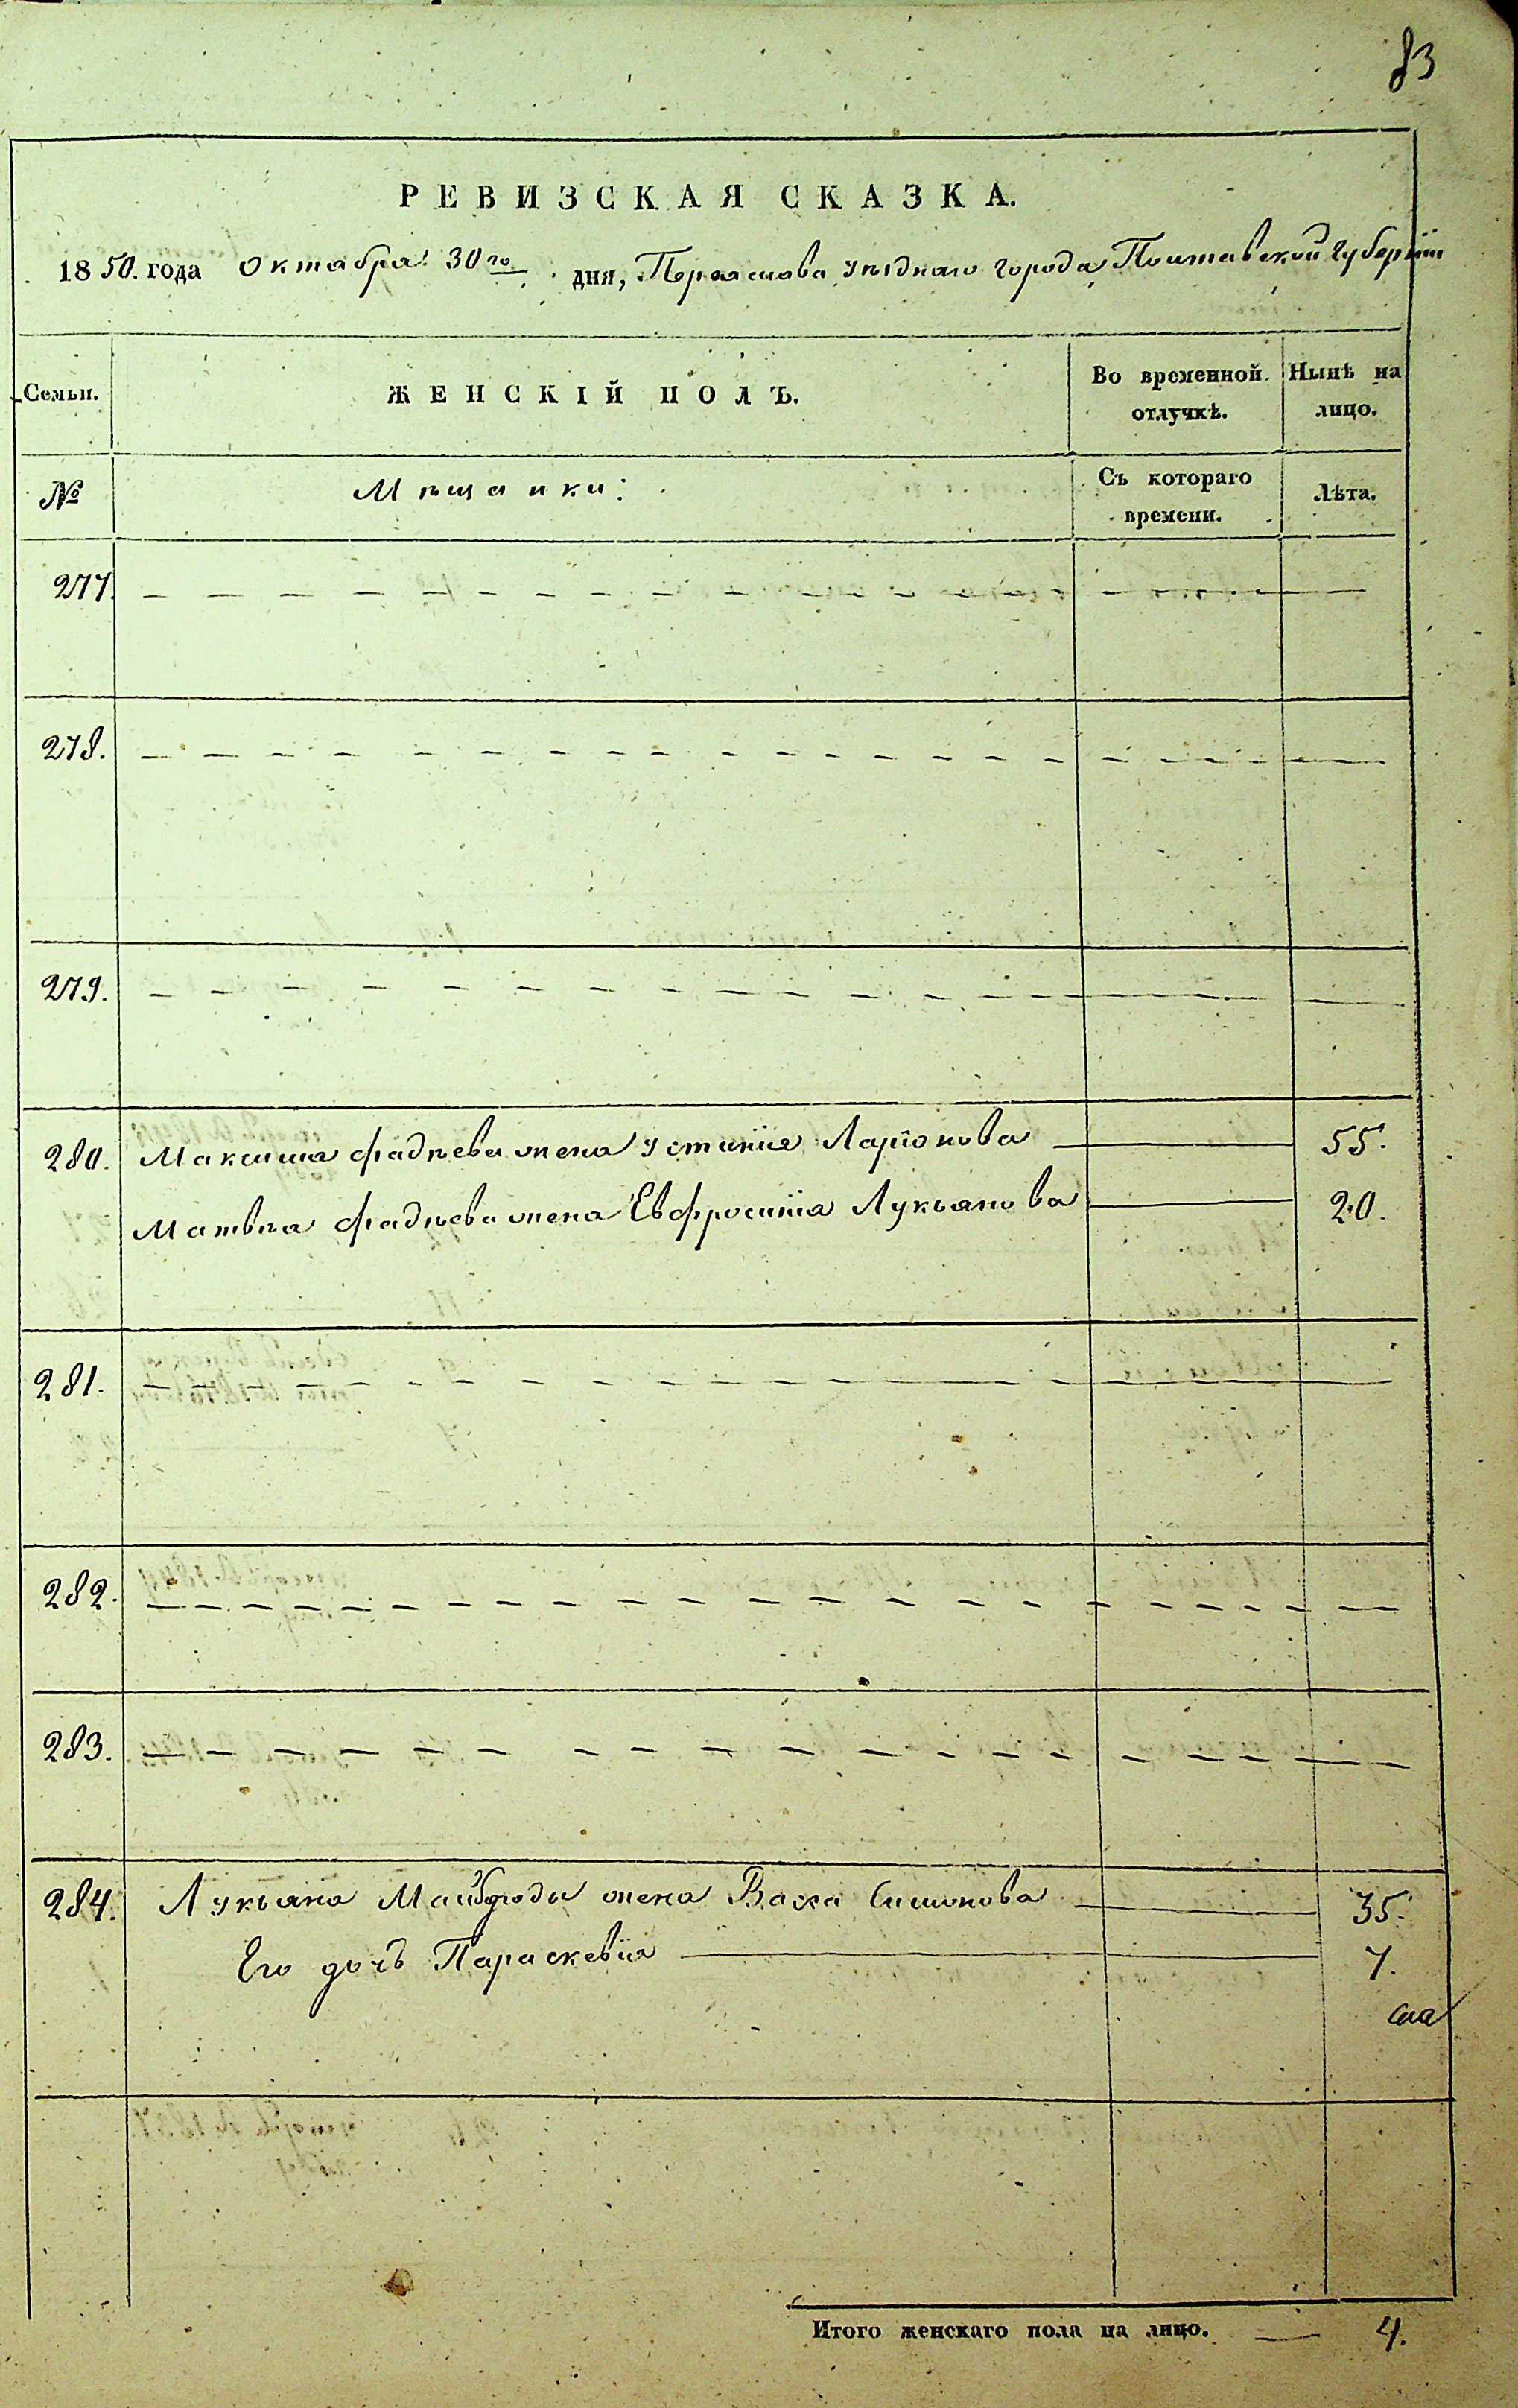 83
РЕВИЗСКАЯ СКАЗКА.
1850. года Октября 30го дня, Переяслова уѣзднаго города Полтавской Губерніи
Семьи. ЖЕНСКІЙ ПОЛЪ. Во временной отлучкѣ. Нынѣ на лицо.
№ Мѣщанки: Съ котораго времени. Лѣта.
277.
278.
279.
280. Максима Фадѣева жена Устинія Ларіонова 55.
Матвѣя Фадѣева жена Евфросинія Лукьянова 20.
281.
282.
283.
284. Лукьяна Майброды жена Васса Симонова 35.
Его дочь Параскевія 7.
Итого женскаго пола на лицо. 4.